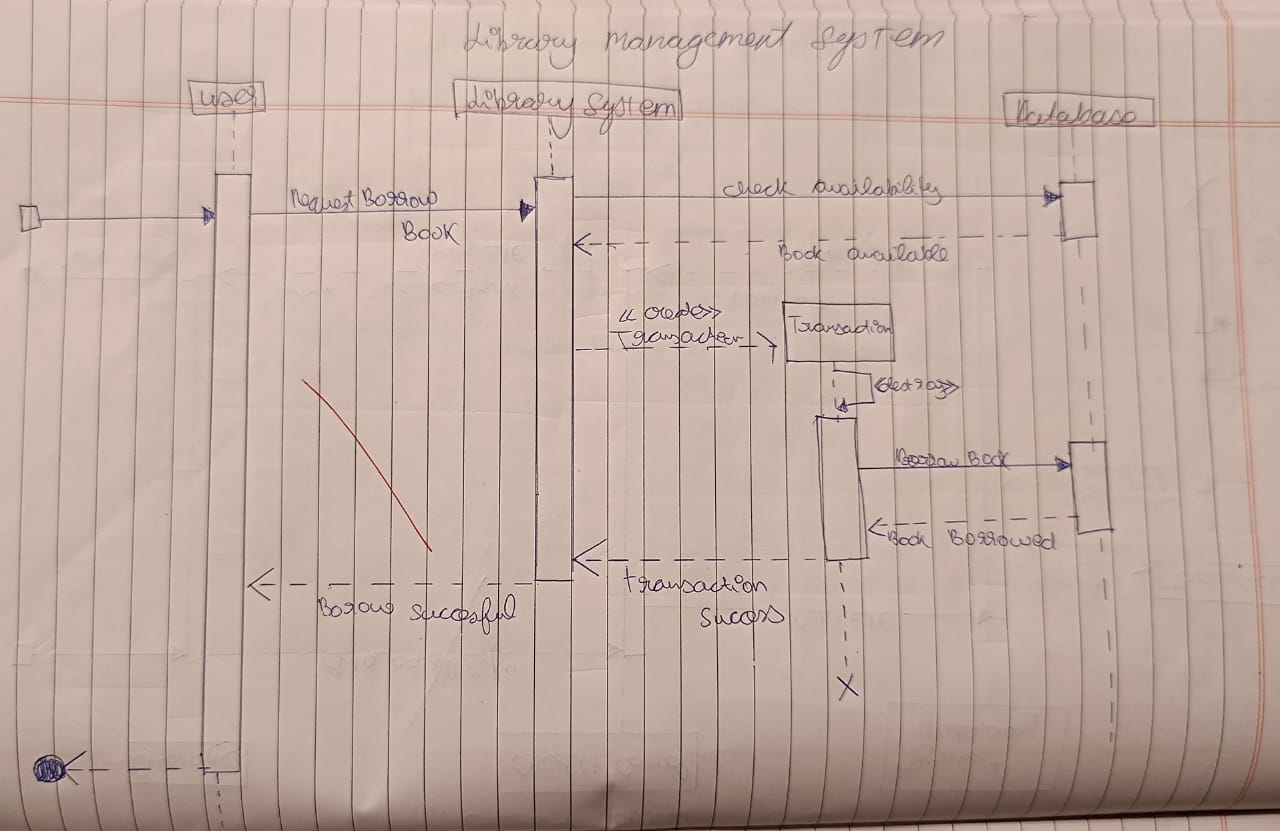 Library management System
User
Library System
Database
Request Borrow
Book
check availability
Book available
<<create>>
Transaction
Transaction
<<destroy>>
Borrow Book
Book Borrowed
transaction
Sucess
Borow sucessful